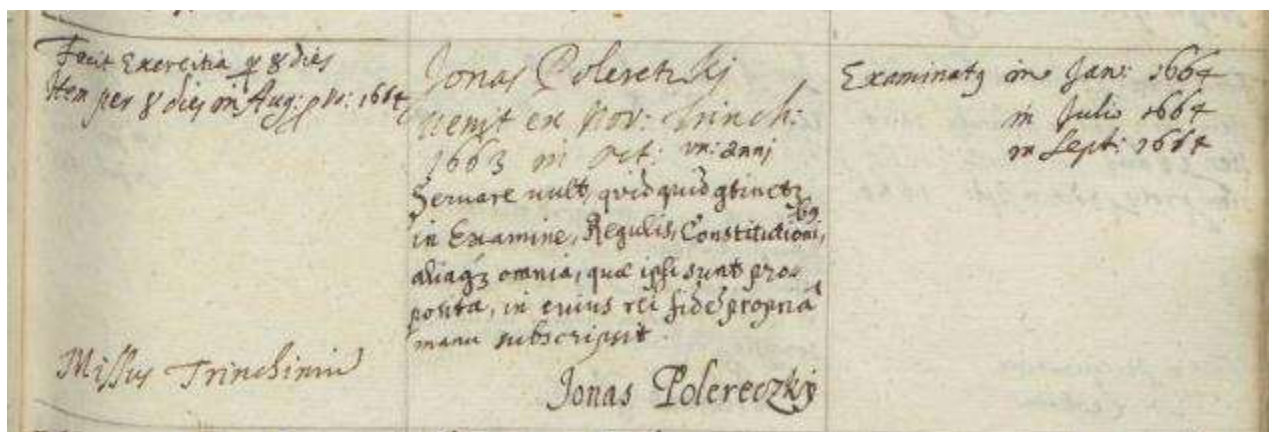 Fecit Exercitia per 8 dies
Item per 8 dies in Aug: 1664
Jonas Poleretzkj
venit ex Nov: Trinch:
1663 in oct: vn: annj
Servare vult, quidquid gtinetz
in Examine, Regulis, Constitutionibg,
aliaqz omnia, quae ipsi sunt pro⸗
posita, in cuius rei fidē propriā
manu subscripsit.
Jonas Polereczkij
Missus Trinchiniū
Examinatg in Jan: 1664
in Julio 1664
in Sept: 1664